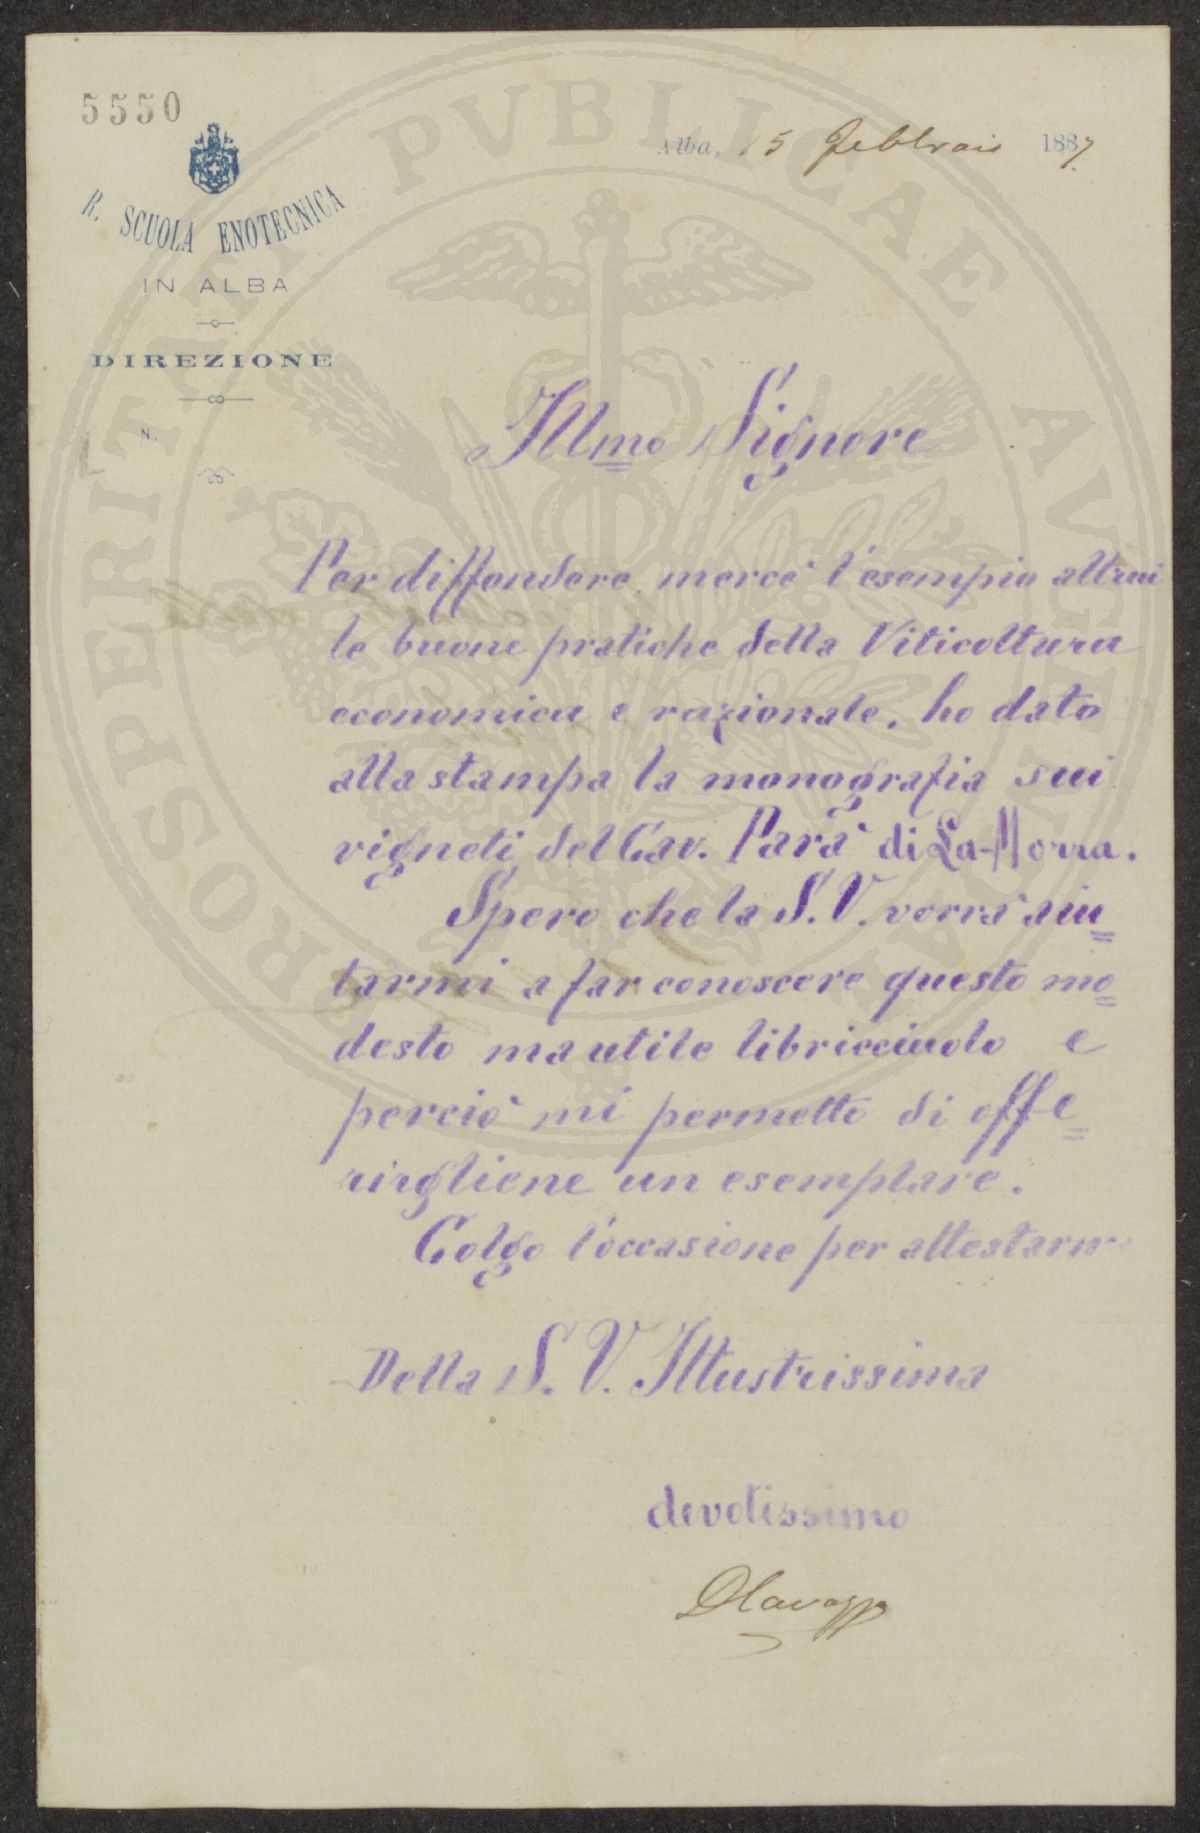 5550
Alba, 15 Febbraio 1887
R. SCUOLA ENOTECNICA
IN ALBA
DIREZIONE
N.
Illmo Signore
Per diffondere mercè l'esempio altrui
le buone pratiche della Viticoltura
economica e razionale, ho dato
alla stampa la monografia sui
vigneti del Cav. Parà di La-Morra.
Spero che la S. V. vorrà aiu=
tarmi a far conoscere questo mo=
desto ma utile libricciuolo e
perciò mi permetto di offe=
rirgliene un esemplare.
Colgo l'occasione per attestarmi
Della S. V. Illustrissima
devotissimo
PROSPERITATI PVBLICAE AVGENDAE